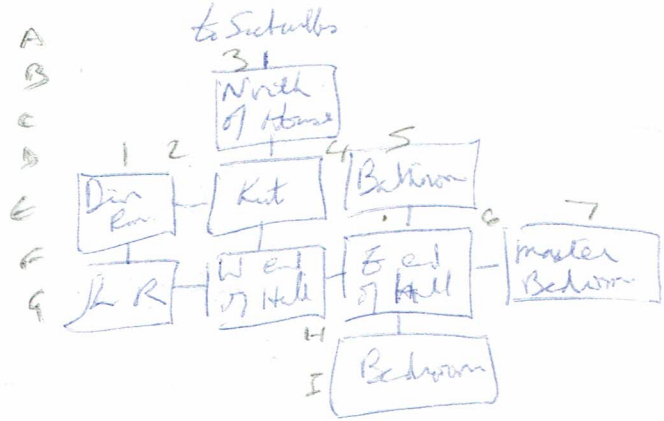 A
to
B
3
North
of House
C
D
1 2
4
5
Din
Rm
Kit
Bathroom
E
6
7
F
W End
of Hall
E end
of Hall
master
Bedroom
G
R
H
I
Bedroom